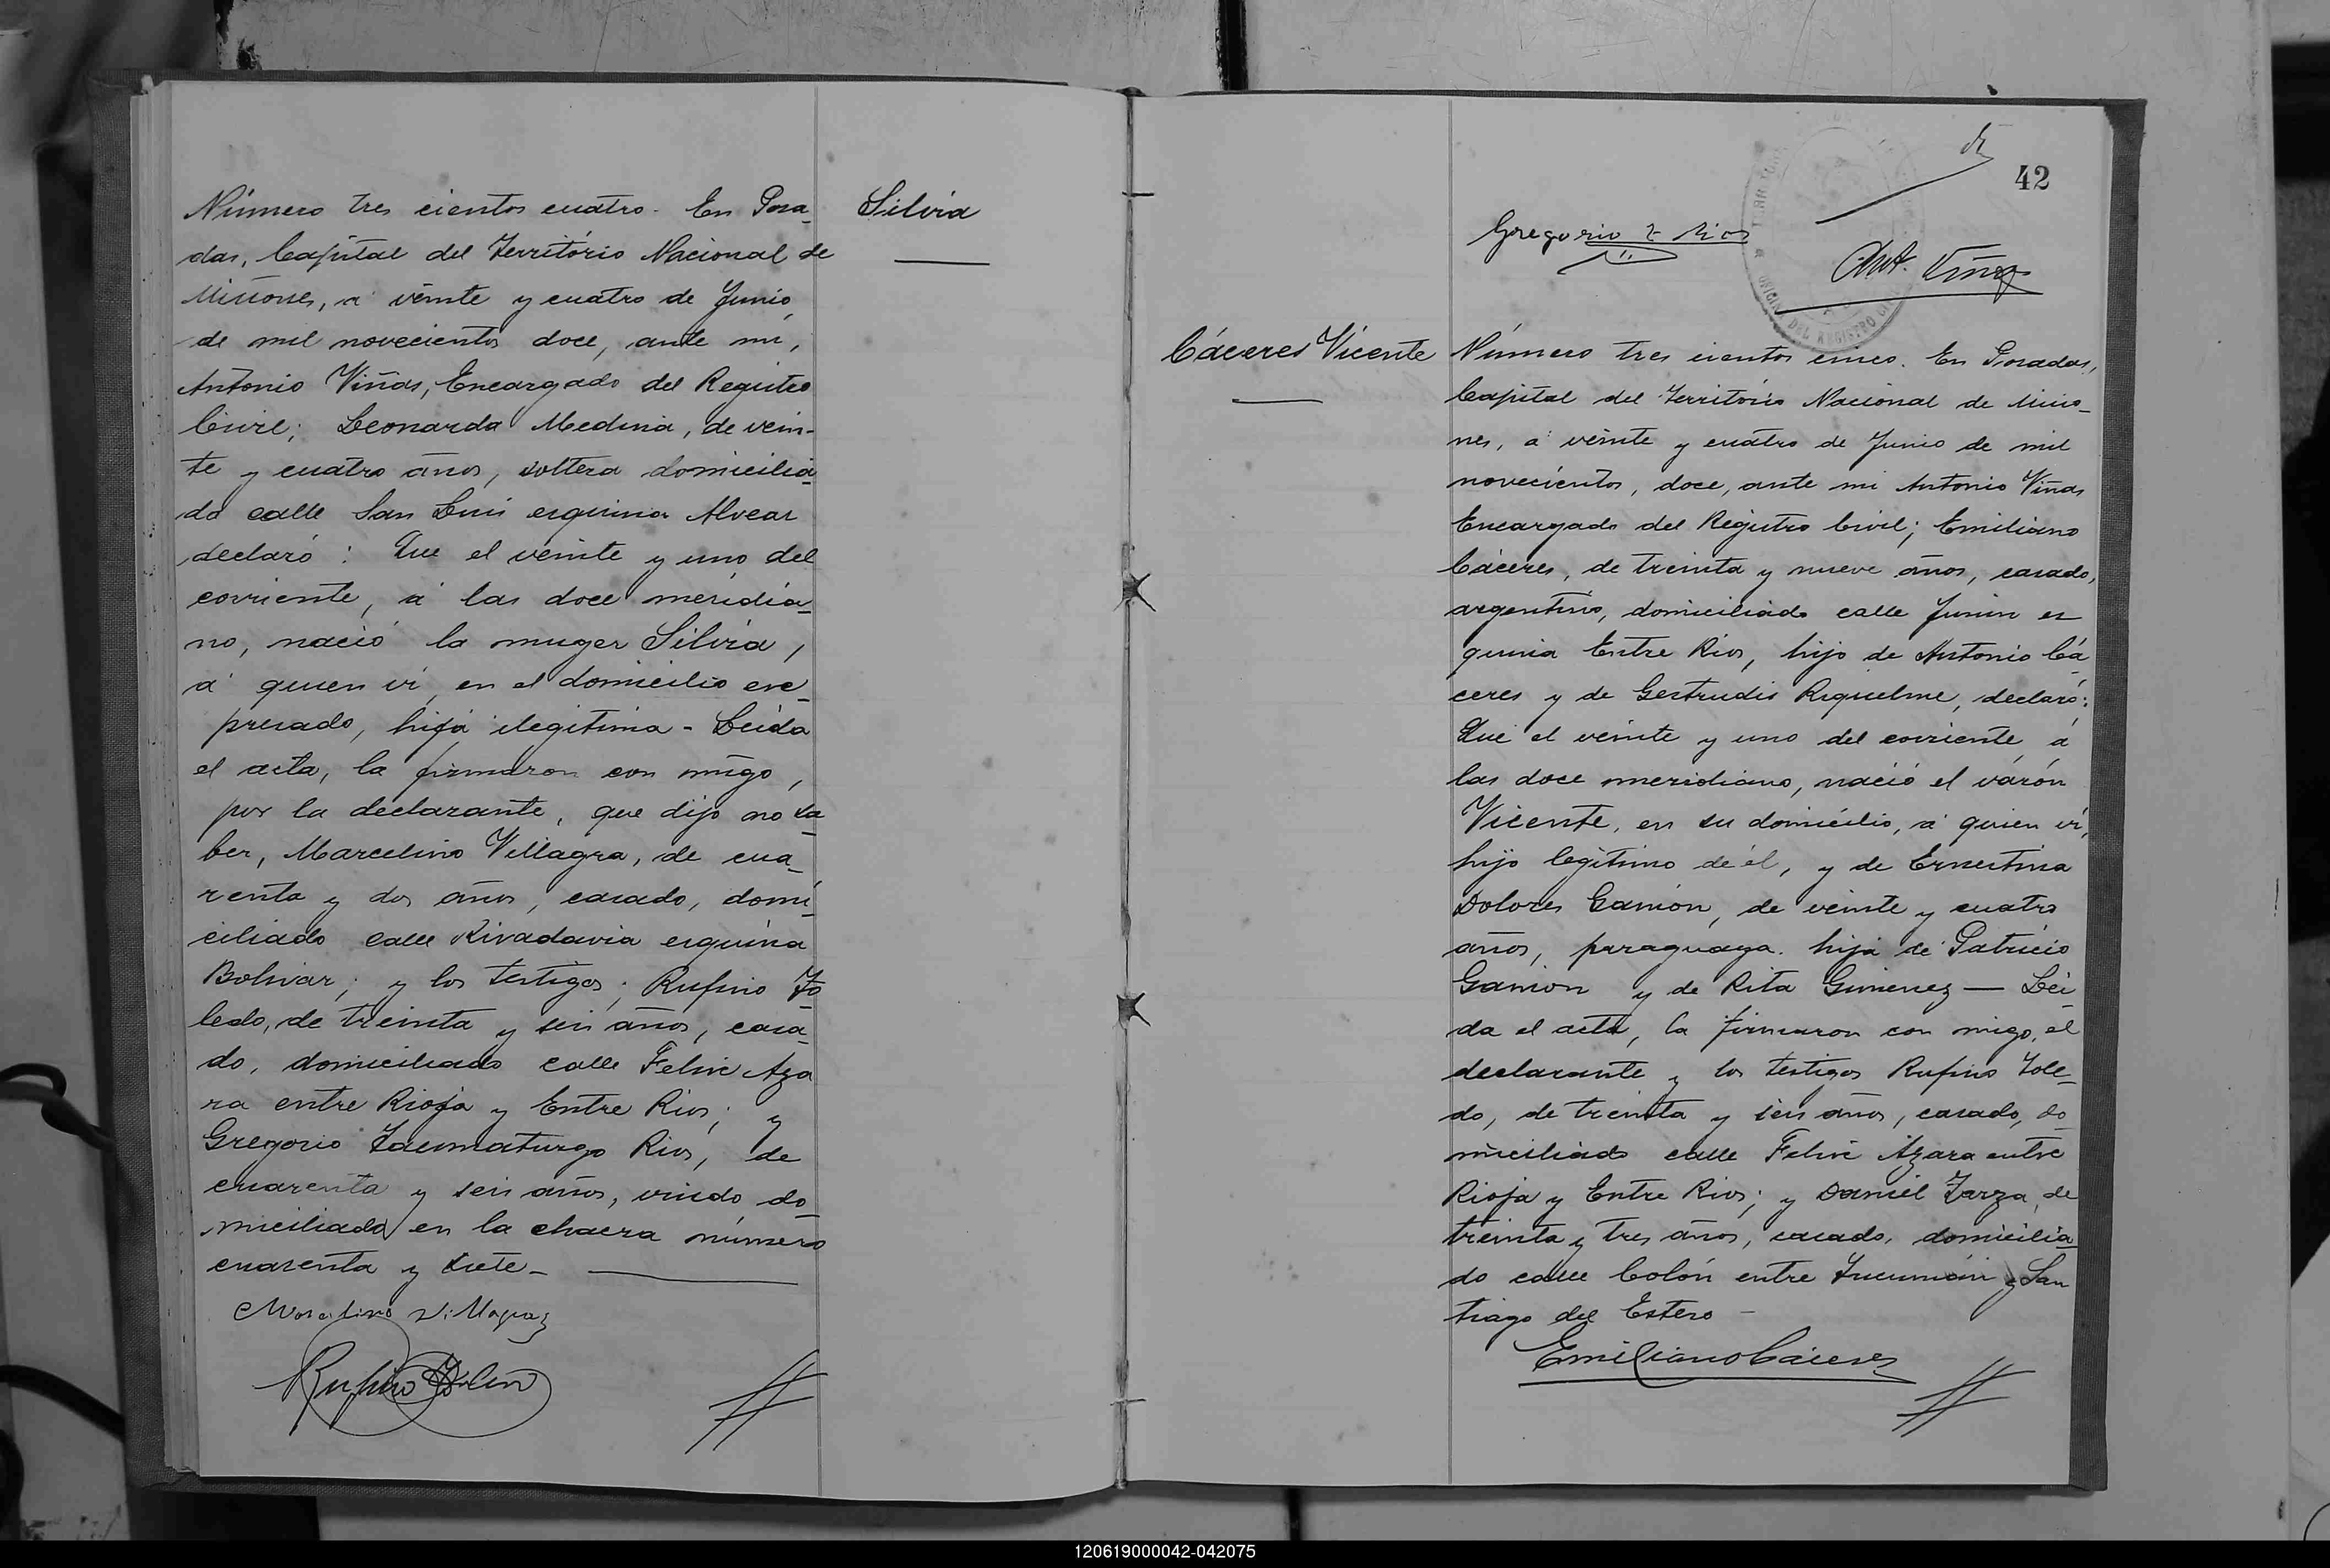 Silvia
Número tres cientos cuatro. En Posa-
das, Capital del Território Nacional de
Misiones, á veinte y cuatro de Junio,
de mil novecientos doce, ante mi,
Antonio Viñas, Encargado del Registro
Civil; Leonarda Medina, de vein-
te y cuatro años, soltera domicilia-
da calle San Luis esquina Alvear
declaró: Que el veinte y uno del
corriente, á las doce meridia-
no, nació la muger Silvia,
á quien ví en el domicilio exe-
presado, hija ilegitima - Leida
el acta, la firmaron con migo,
por la declarante, que dijo no sa-
ber, Marcelino Villagra, de cua-
renta y dos años, casado, domi-
ciliado calle Rivadavia esquina
Bolivar; y los testigos; Rufino To-
ledo, de treinta y seis años, casa-
do, domiciliado calle Felix Aza
ra entre Rioja y Entre Rios; y
Gregorio Taumaturgo Rios, de
cuarenta y seis años, viudo, do-
miciliado en la chacra número
cuarenta y siete -
Marcelino Villagra
Rufino Toledo
42
Gregorio T Rios
Ant. Viñas
OFICINA DEL REGISTRO
Cáceres Vicente
Número tres cientos cinco. En Posadas,
Capital del Território Nacional de Misio-
nes, á veinte y cuatro de Junio de mil
novecientos, doce, ante mi Antonio Viñas
Encargado del Registro Civil; Emiliano
Cáceres, de treinta y nueve años, casado,
argentino, domiciliado calle Junin es
quina Entre Rios, hijo de Antonio Cá-
ceres y de Gertrudis Riquelme, declaró:
Que el veinte y uno del corriente á
las doce meridiano, nació el varón
Vicente, en su domicilio, á quien ví,
hijo legitimo de él, y de Ernestina
Dolores Ganión, de veinte y cuatro
años, paraguaya. hija de Patricio
Ganion y de Rita Gimenez — Lei-
da el acta, la firmaron con migo, el
declarante y los testigos Rufino Tole-
do, de treinta y seis años, casado, do-
miciliado calle Felix Azara entre
Rioja y Entre Rios; y Daniel Zarza, de
treinta y tres años, casado, domicilia-
do calle Colón entre Tucumán y San
tiago del Estero -
Emiliano Cáceres
120619000042-042075